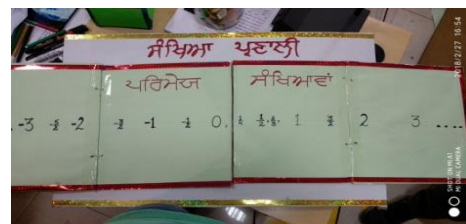 ਸੰਖਿਆ ਪ੍ਰਣਾਲੀ
ਪਰਿਮੇਜ ਸੰਖਿਆਵਾਂ
-3 -2 -1 0, 1 2 3 ....
2018/2/27 16:54
SHOT ON MI A1
MI DUAL CAMERA